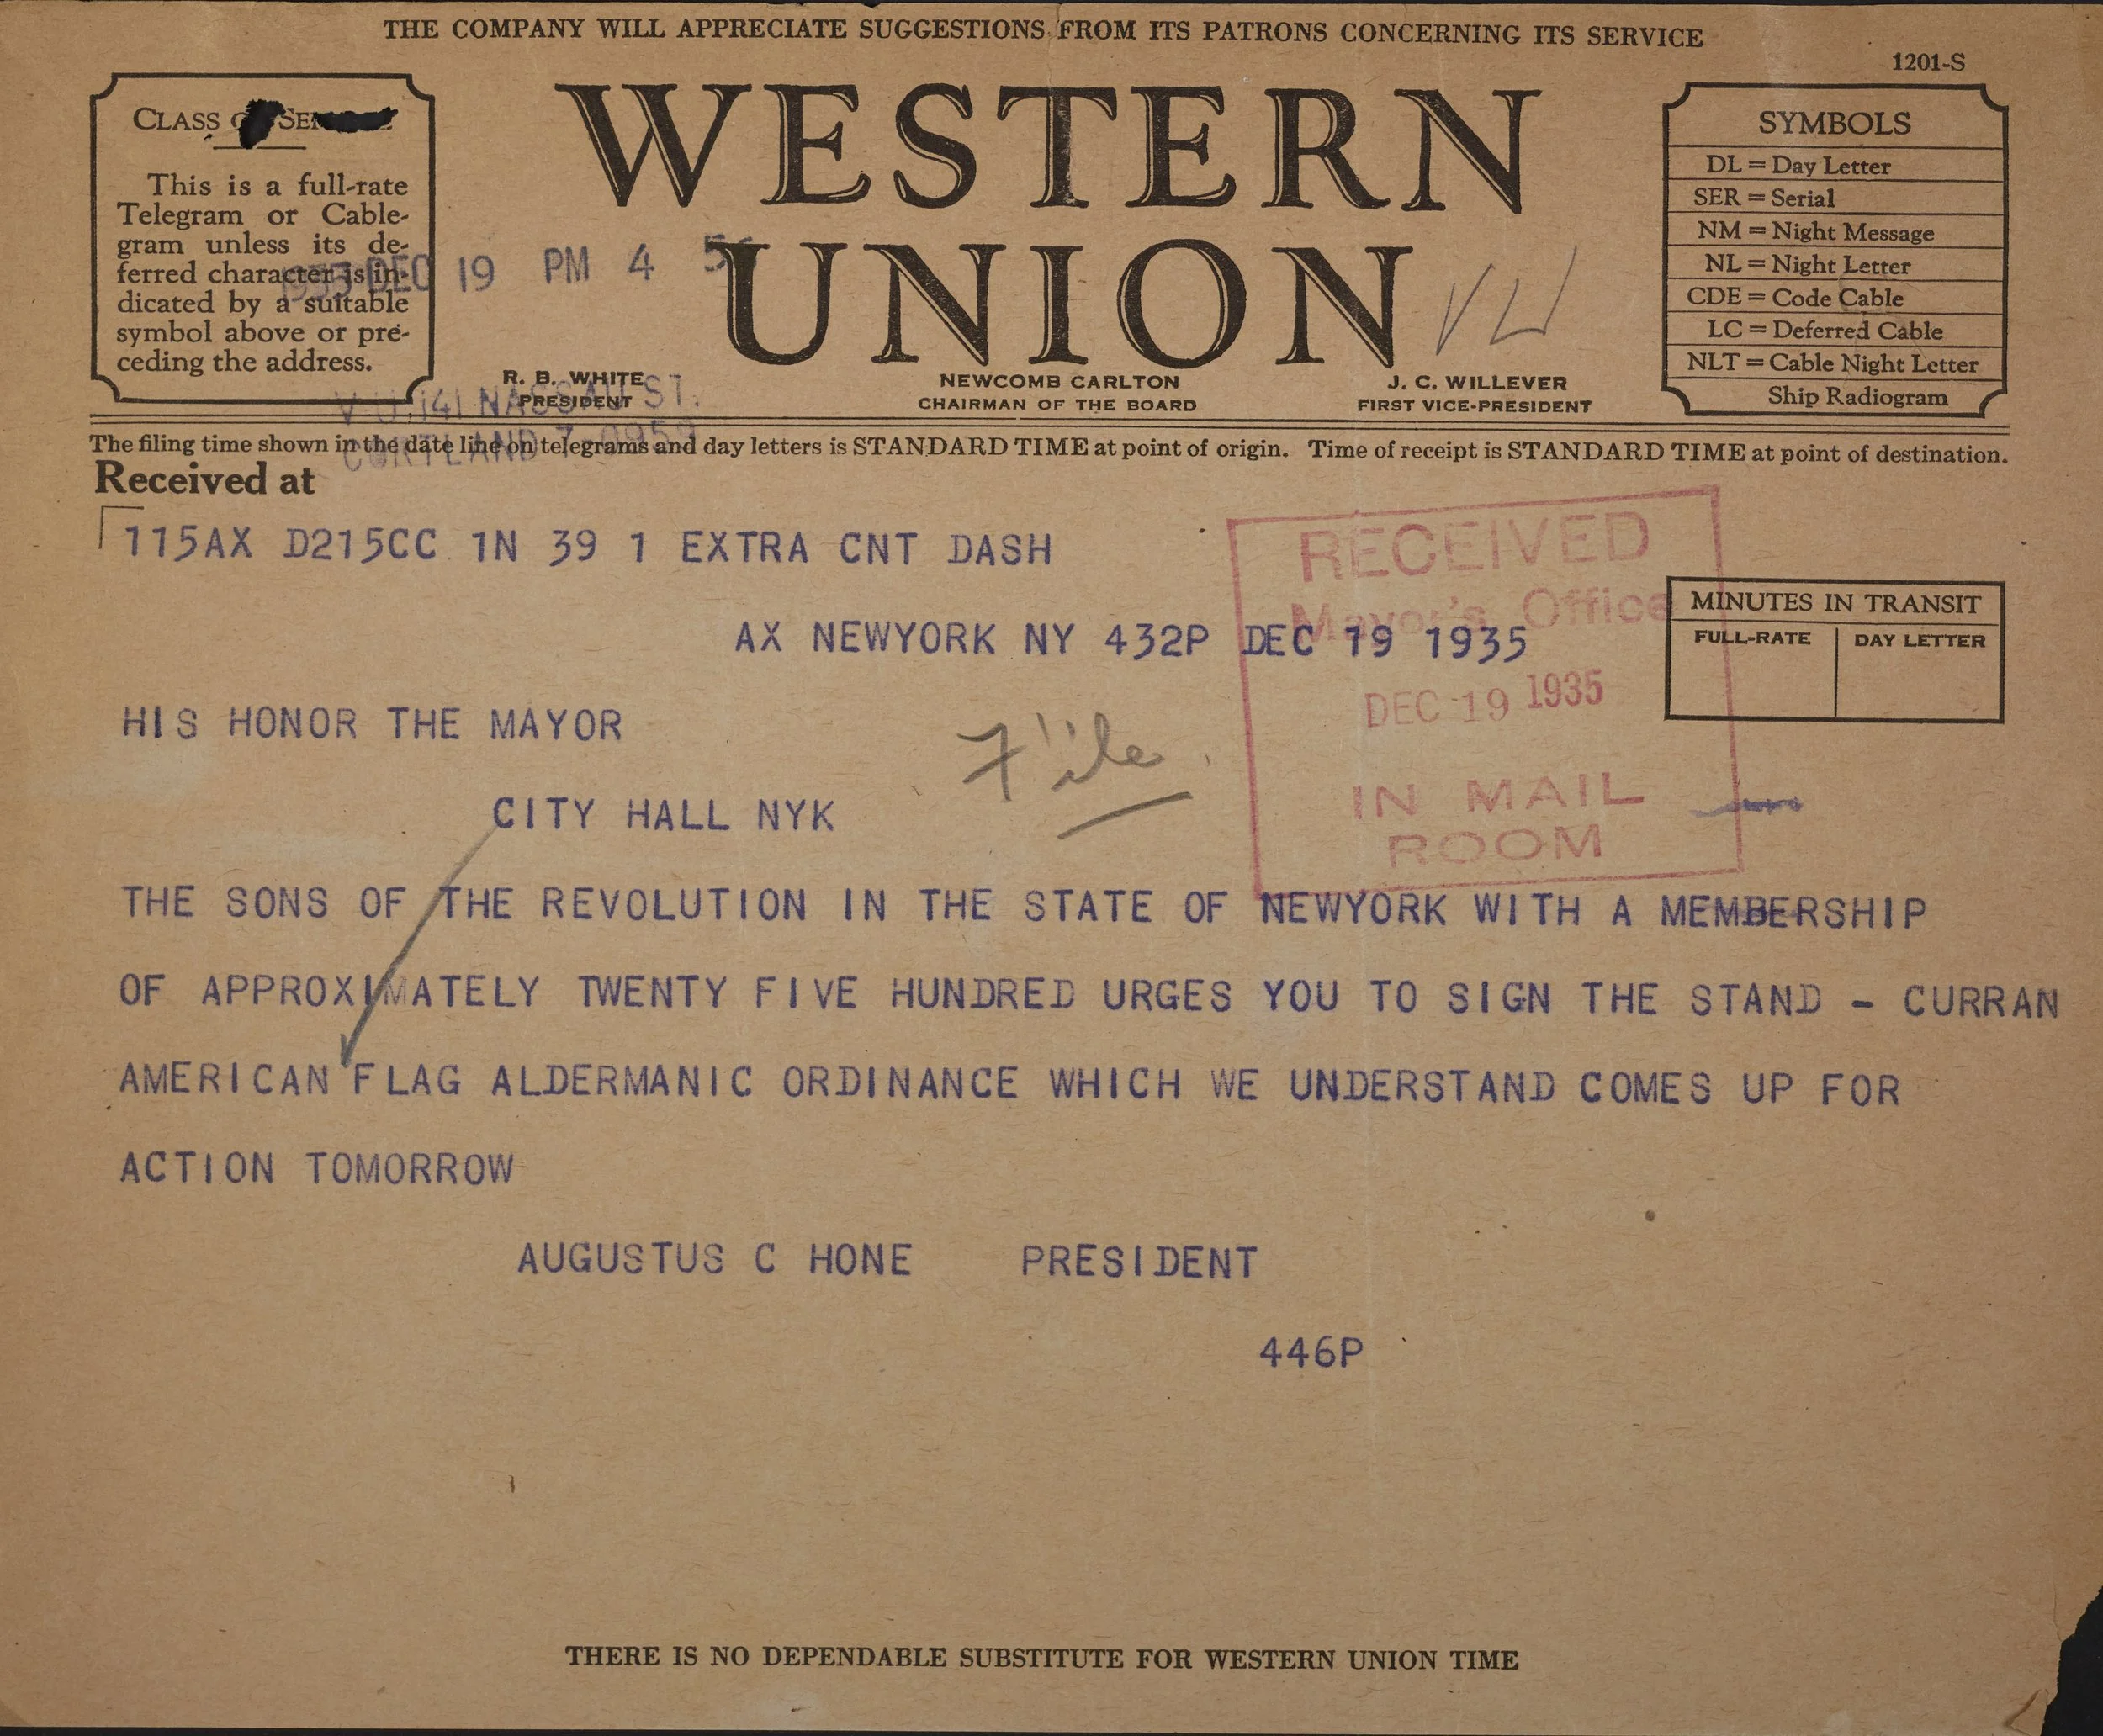 THE COMPANY WILL APPRECIATE SUGGESTIONS FROM ITS PATRONS CONCERNING ITS SERVICE
1201-S
CLASS
This is a full-rate
Telegram or Cable-
gram unless its de-
ferred character is in-
dicated by a suitable
symbol above or pre-
ceding the address.
DEC 19 PM 4
WESTERN
UNION
SYMBOLS
DL = Day Letter
SER = Serial
NM = Night Message
NL = Night Letter
CDE = Code Cable
LC = Deferred Cable
NLT = Cable Night Letter
Ship Radiogram
R. B. WHITE
PRESIDENT
NEWCOMB CARLTON
CHAIRMAN OF THE BOARD
J. C. WILLEVER
FIRST VICE-PRESIDENT
141 NASSAU ST.
The filing time shown in the date line on telegrams and day letters is STANDARD TIME at point of origin. Time of receipt is STANDARD TIME at point of destination.
CORTLAND 7
Received at
115AX D215CC 1N 39 1 EXTRA CNT DASH
AX NEWYORK NY 432P DEC 19 1935
RECEIVED
Mayor's Office
DEC 19 1935
IN MAIL
ROOM
MINUTES IN TRANSIT
FULL-RATE DAY LETTER
HIS HONOR THE MAYOR
File
CITY HALL NYK
THE SONS OF THE REVOLUTION IN THE STATE OF NEWYORK WITH A MEMBERSHIP
OF APPROXIMATELY TWENTY FIVE HUNDRED URGES YOU TO SIGN THE STAND - CURRAN
AMERICAN FLAG ALDERMANIC ORDINANCE WHICH WE UNDERSTAND COMES UP FOR
ACTION TOMORROW
AUGUSTUS C HONE PRESIDENT
446P
THERE IS NO DEPENDABLE SUBSTITUTE FOR WESTERN UNION TIME